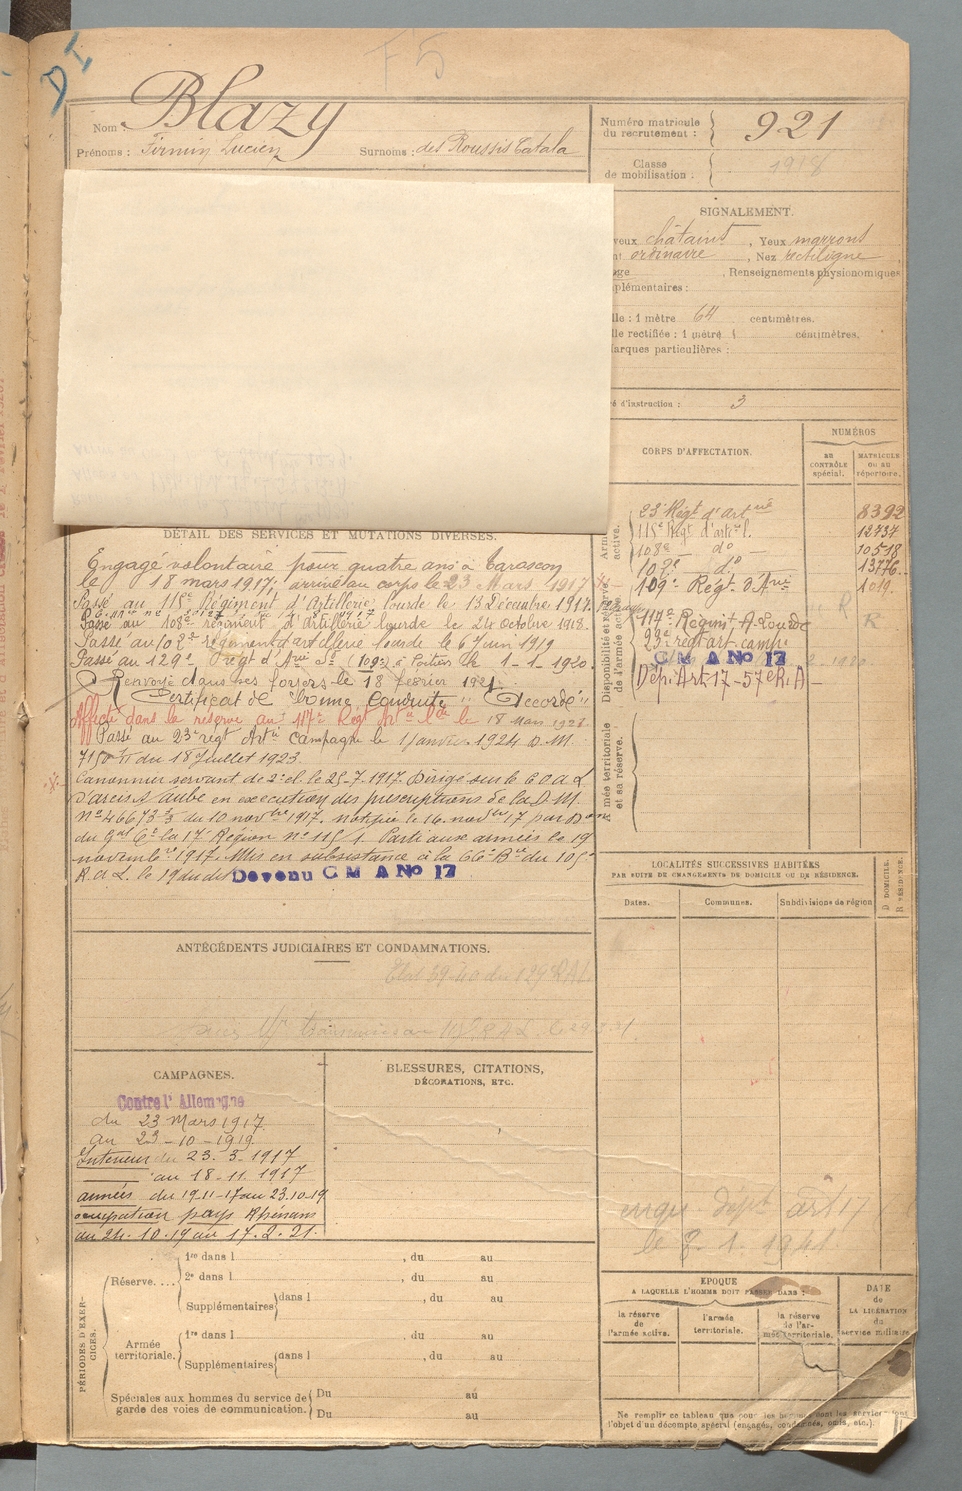 DI
F5
Nom : Blazy
Prénoms : Firmin Lucien Surnoms : des Roussis Catala
Numéro matricule du recrutement : 921
Classe de mobilisation : 1918
SIGNALEMENT.
veux châtains, Yeux marrons
ordinaire, Nez rectiligne
, Renseignements physionomiques
plémentaires :
lle : 1 mètre 64 centimètres.
lle rectifiée : 1 mètre centimètres.
arques particulières :
é d'instruction : 3
CORPS D'AFFECTATION.
NUMÉROS
AU CONTRÔLE spécial.
MATRICULE OU AU répertoire.
Armée active.
23e Régt d'artrie 8392
115e Régt d'artie l. 12737
108e — do — 10518
102e — do 13776
109e Régt d'Artrie 1019
Disponibilité et réserve de l'armée active.
117e Regint A. Lourde
23e regt art camp
CM A No 17
Dépt Art 17 - 57e R.A
R
R
Armée territoriale et sa réserve.
DÉTAIL DES SERVICES ET MUTATIONS DIVERSES.
Engagé volontaire pour quatre ans à Tarascon
le 18 mars 1917, arrivé au corps le 23 Mars 1917
Passé au 115e Régiment d'Artillerie lourde le 13 Décembre 1917.
Passé au 108e régiment d'artillerie lourde le 24 Octobre 1918.
Passé au 102e régiment d'artillerie lourde le 6 Juin 1919
Passé au 129e régt d'Arie (109e) à Poitiers le 1-1-1920.
Renvoyé dans ses foyers le 18 février 1921.
Certificat de "Bonne Conduite" "Accordé"
Affecté dans la réserve au 117e Régt Artie Lde le 18 Mars 1921
Passé au 23e régt Artie campagne le 1 janvier 1924 D.M.
7150 du 18 Juillet 1923.
Canonnier servant de 2e cl. le 25-7-1917. Dirigé sur le C O A L
d'arcis s/ Aube en execution des prescriptions de la D.M.
No 46673 du 10 novbre 1917. notifiée le 16 novbre 17 par
du Gal Ct la 17 Région no 115 1. Parti aux armées le 19
novembre 1917. Mis en subsistance à la 66e Bie du 105e
R.A.L. le 19 du dit Devenu C M A No 17
ANTÉCÉDENTS JUDICIAIRES ET CONDAMNATIONS.
Etat 39-40 du 129 RAL
LOCALITÉS SUCCESSIVES HABITÉES
PAR SUITE DE CHANGEMENTS DE DOMICILE OU DE RÉSIDENCE.
Dates.
Communes.
Subdivisions de région
D DOMICILE.
R RÉSIDENCE.
CAMPAGNES.
Contre l'Allemagne
du 23 Mars 1917
au 23-10-1919.
Intérieur du 23.3.1917
au 18-11.1917
armées du 19-11-17 au 23.10.19
occupation pays Rhénans
du 24.10.19 au 17.2.21.
BLESSURES, CITATIONS,
DÉCORATIONS, ETC.
dépt art 17
le 8. 1. 1941
PÉRIODES D'EXERCICES.
Réserve....
1re dans l , du au
2e dans l , du au
Supplémentaires dans l , du au
Armée territoriale.
1re dans l , du au
Supplémentaires dans l , du au
Spéciales aux hommes du service de garde des voies de communication.
Du au
Du au
EPOQUE
A LAQUELLE L'HOMME DOIT PASSER DANS :
la réserve de l'armée active.
l'armée territoriale.
la réserve de l'armée territoriale.
DATE de LA LIBÉRATION du service militaire
Ne remplir ce tableau que pour les hommes dont les services font
l'objet d'un décompte spécial (engagés, condamnés, omis, etc.).